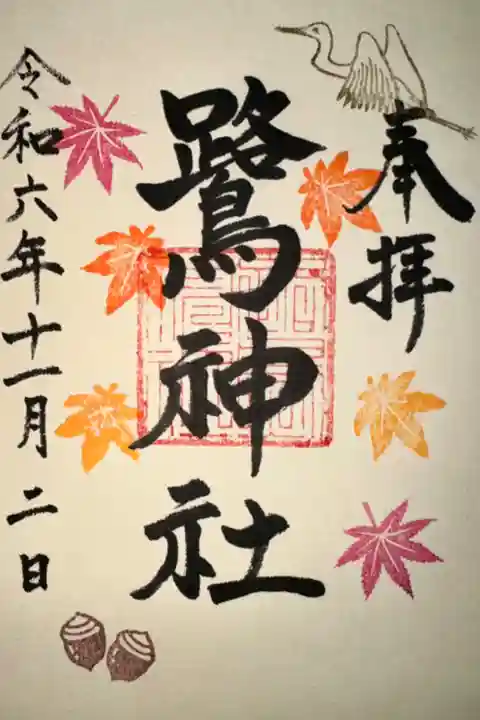 奉拝
鷺神社
令和六年十一月二日